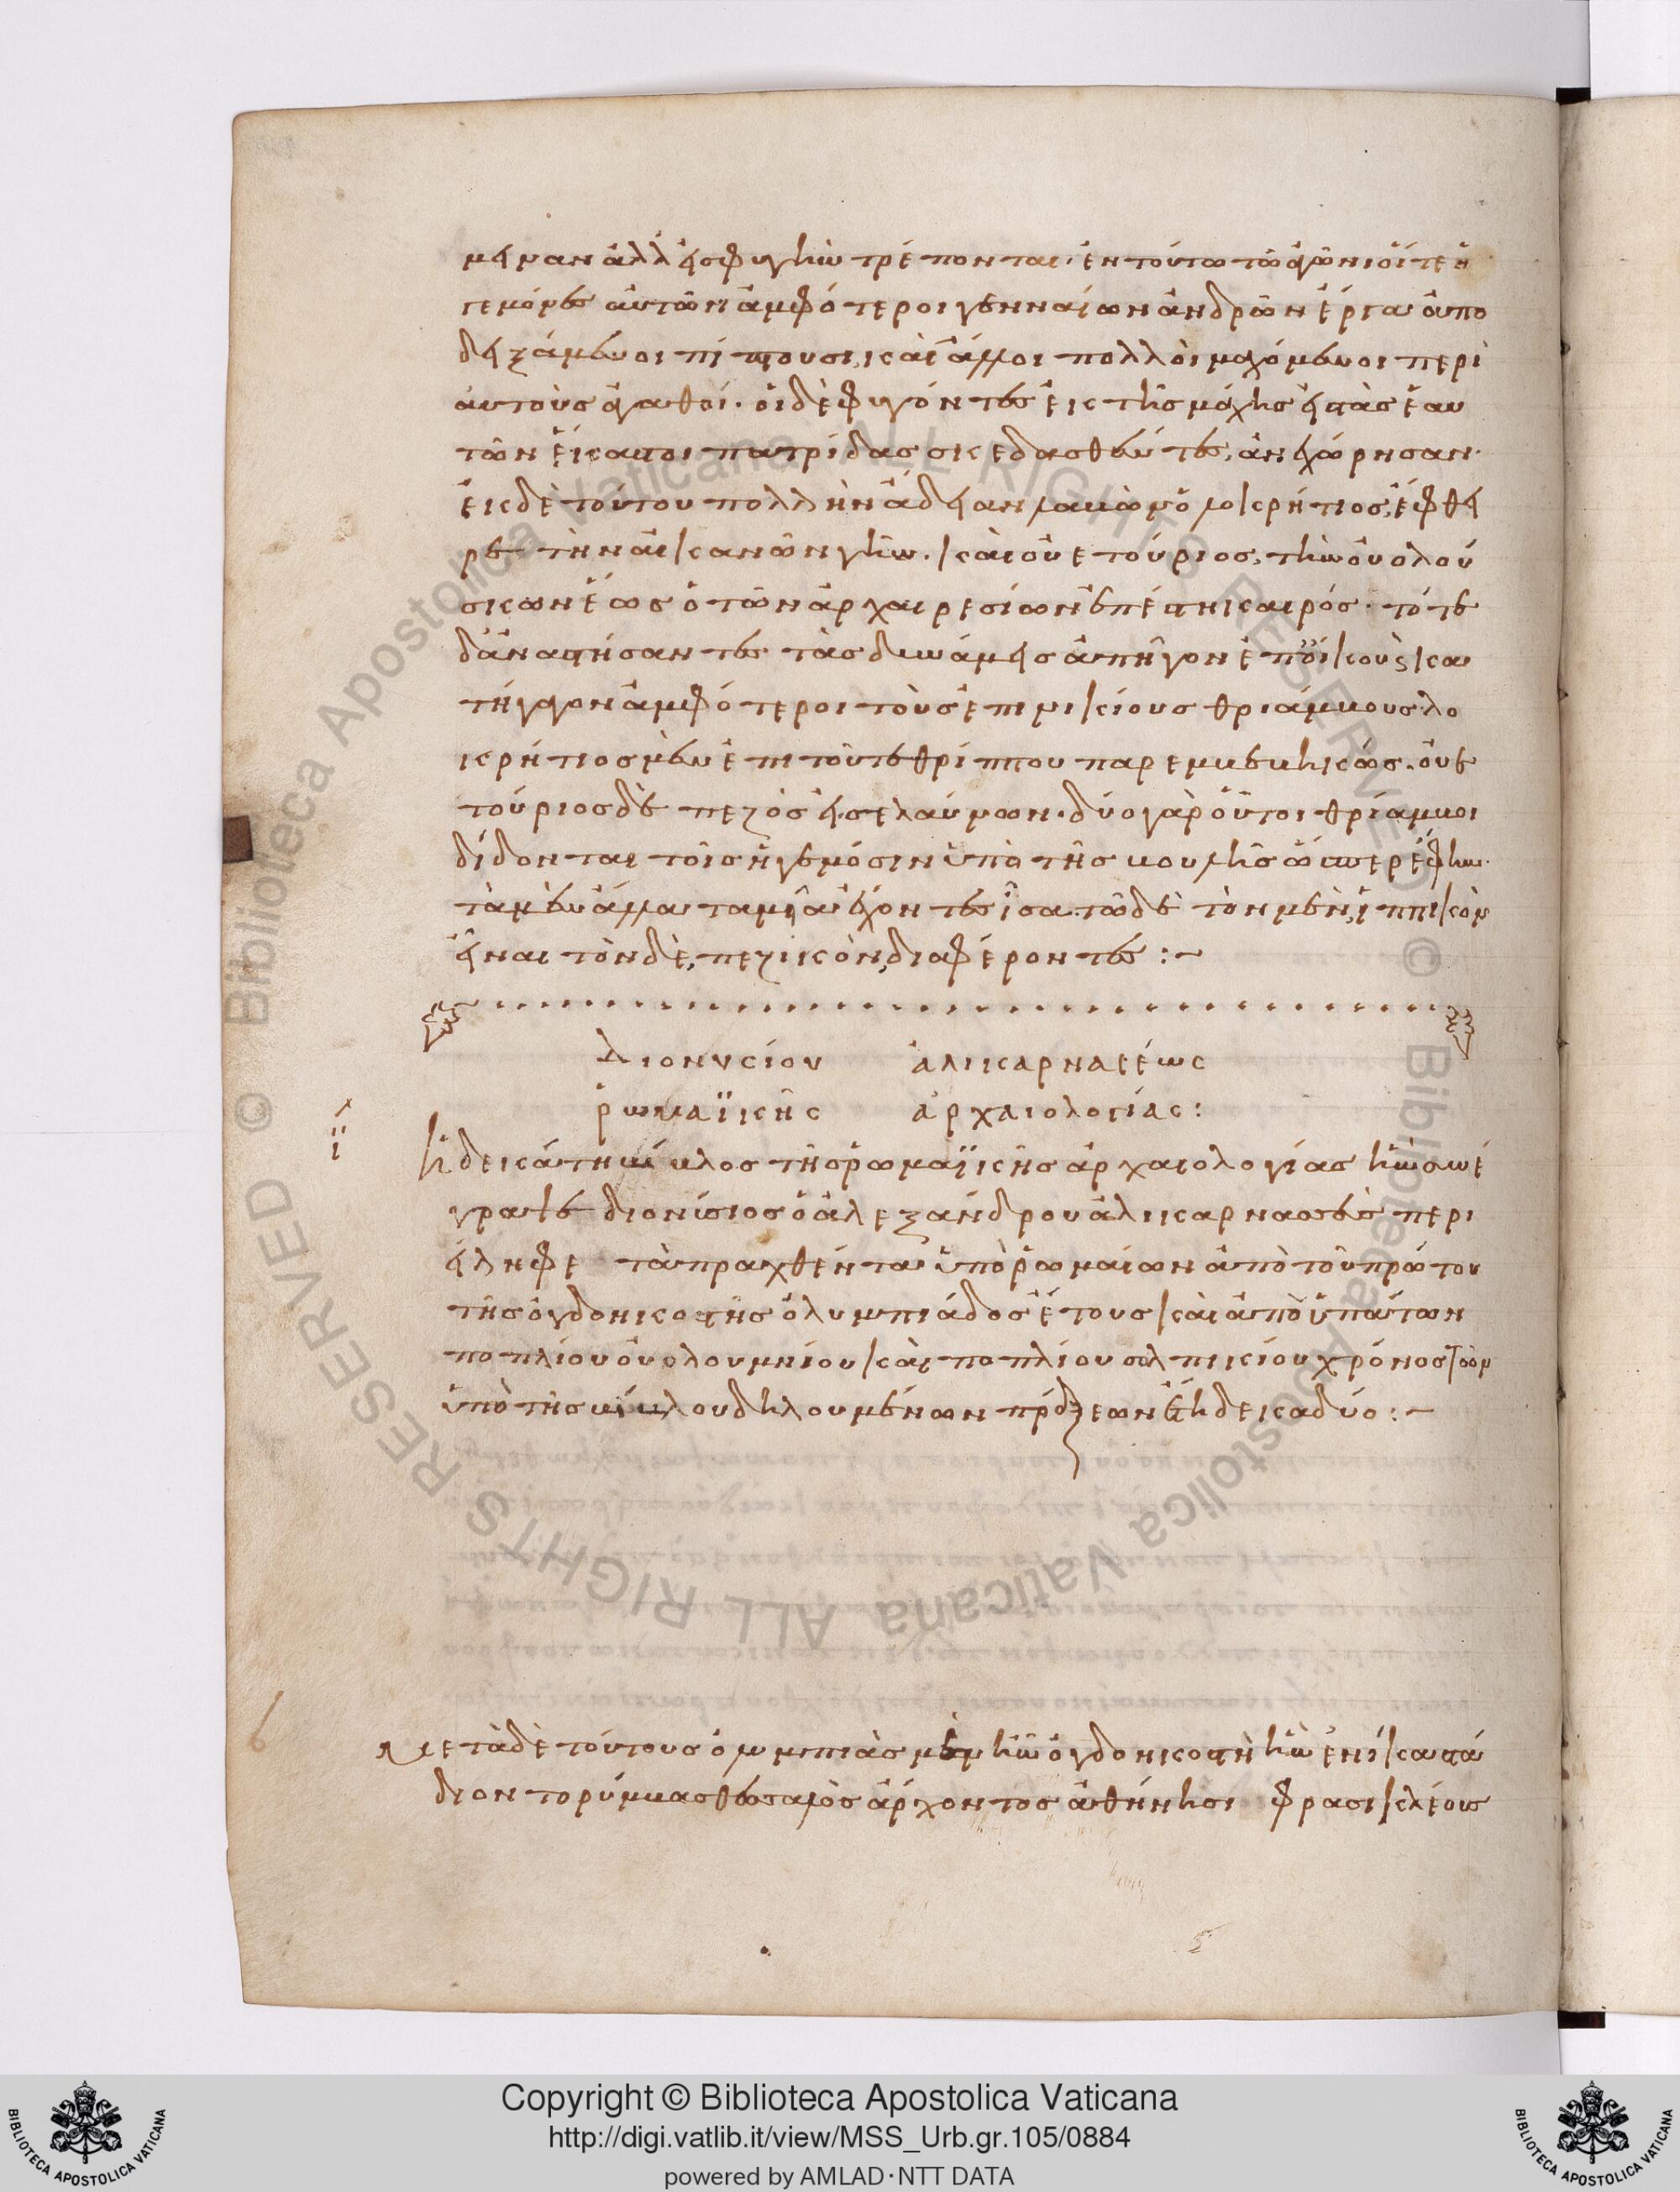 μειναν ἀλλ' εἰς φυγὴν τρέπονται. ἐν τούτω τῶ ἀγῶνι οἵ τε ἡ
γεμόνες αὐτῶν ἀμφότεροι γενναίων ἀνδρῶν ἔργα ἀπο
δειξάμενοι πίπτουσι, καὶ ἄλλοι πολλοὶ μαχόμενοι περὶ
αυτοὺς ἀγαθοί. οἱ δὲ φυγόντες ἐκ τῆς μάχης ἐπὶ τὰς ἑαυ
τῶν ἕκαστοι πατρίδας σκεδασθέντες, ἀνεχώρησαν.
ἐκ δὲ τούτου πολλὴν ἄδειαν λαβὼν ὁ λοκρήτιος, ἔφθει
ρε τὴν αἰκανῶν γῆν. καὶ οὐετούριος, τὴν οὐολού
σκων ἕως ὁ τῶν ἀρχαιρεσίων ἐπέστη καιρός. τότε
δ' ἀναστήσαντες τὰς δυνάμεις ἀπῆγον ἐπ' οἴκους κα
τήγαγον ἀμφότεροι τοὺς ἐπινικίους θριάμβους. λο
κρήτιος μὲν ἐπὶ τοῦ τεθρίππου παρεμβεβηκώς. οὐε
τούριος δὲ πεζὸς εἰσελαύνων. δύο γὰρ οὗτοι θρίαμβοι
δίδονται τοῖς ἡγεμόσιν ὑπὸ τῆς βουλῆς ὥσπερ ἔφην.
τὰ μὲν ἄλλα τιμὰς ἔχοντες ἴσα. τῶ δὲ τὸν μὲν, ἱππικὸν
εἶναι τὸν δὲ, πεζικὸν, διαφέροντες :~
Διονυσίου ἁλικαρνασέως
ῥωμαϊκῆς ἀρχαιολογίας :
ϊϊ
Ἡ δεκάτη βίβλος τῆς ῥωμαϊκῆς ἀρχαιολογίας ἣν συνέ
γραψε διονύσιος ὁ ἀλεξάνδρου ἁλικαρνασεὺς περι
είληφε τὰ πραχθέντα ὑπὸ ῥωμαίων ἀπὸ τοῦ πρώτου
τῆς ὀγδοηκοστῆς ὀλυμπιάδος ἔτους καὶ ἀπὸ ὑπάτων
ποπλίου οὐολουμνίου καὶ ποπλίου σολπικίου χρόνος τῶν
ὑπὸ τῆς βίβλου δηλουμένων πράξεων ἔτη δεκαδύο :~
Μετὰ δὲ τούτους ὀλυμπιὰς μὲν ἦν ὀγδοηκοστὴ ἣν ἐνίκα στά
διον τορύμβας θεσσαλὸς ἄρχοντος ἀθήνησι φρασικλέους
Copyright © Biblioteca Apostolica Vaticana
http://digi.vatlib.it/view/MSS_Urb.gr.105/0884
powered by AMLAD·NTT DATA